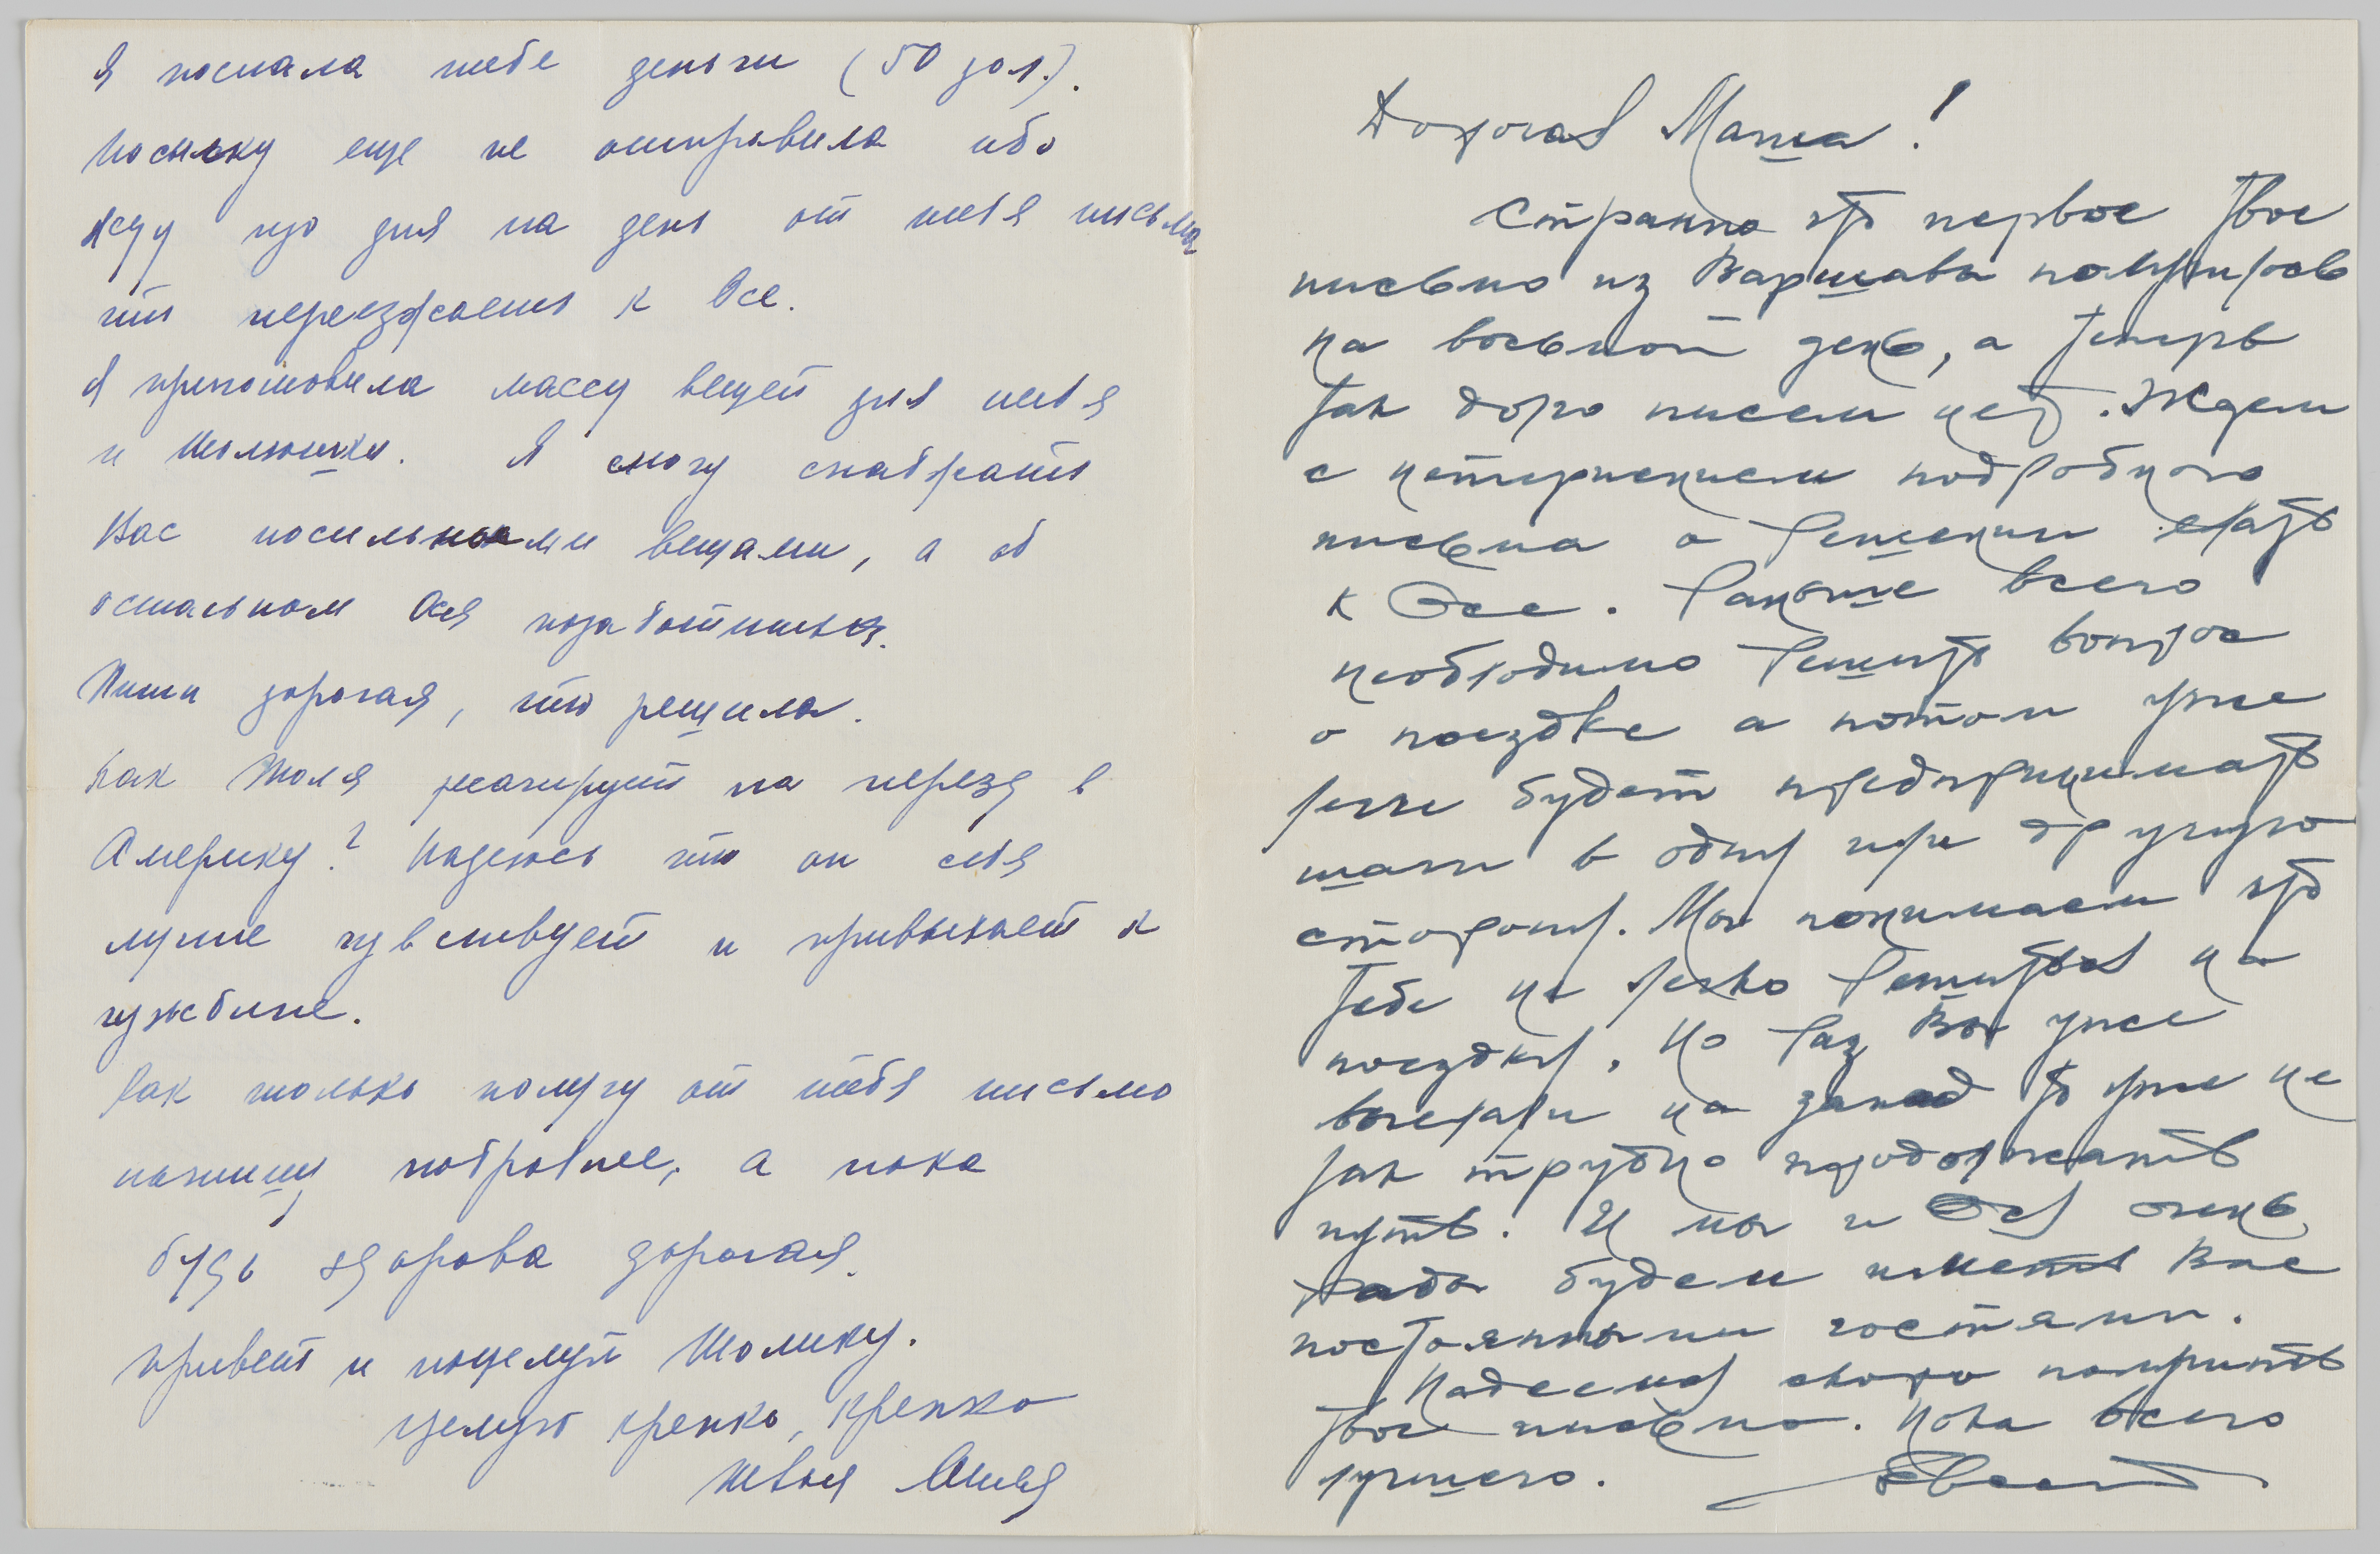 Я послала тебе деньги (50 дол.).
Посылку еще не отправила ибо
жду изо дня на день от тебя письма
что переезжаешь к Осе.
Я приготовила массу вещей для тебя
и Толюшки. Я смогу снабжать
Вас носильными вещами, а об
остальном Ося позаботиться.
Пиши дорогая, что решила.
Как Толя реагирует на переезд в
Америку? Надеюсь что он себя
лучше чувствует и привыкает к
чужбине.
Как только получу от тебя письмо
напишу подробнее, а пока
будь здорова дорогая.
Привет и поцелуй Толику.
Целую крепко, крепко
твоя
Дорогая Маша!
Странно что первое твое
письмо из Варшавы получилось
на восьмой день, а теперь
так долго писем нет. Ждем
с нетерпением подробного
письма о решении ехать
к Осе. Раньше всего
необходимо решить вопрос
о поездке а потом уже
легче будет предпринимать
шаги в одну или другую
сторону. Мы понимаем что
тебе не легко решиться на
поездку, но раз Вы уже
выехали на запад то уже не
так трудно продолжать
путь. И мы и Ося очень
рады будем иметь Вас
постоянными гостями.
Надеемся скоро получить
твое письмо. Пока всего
лучшего.